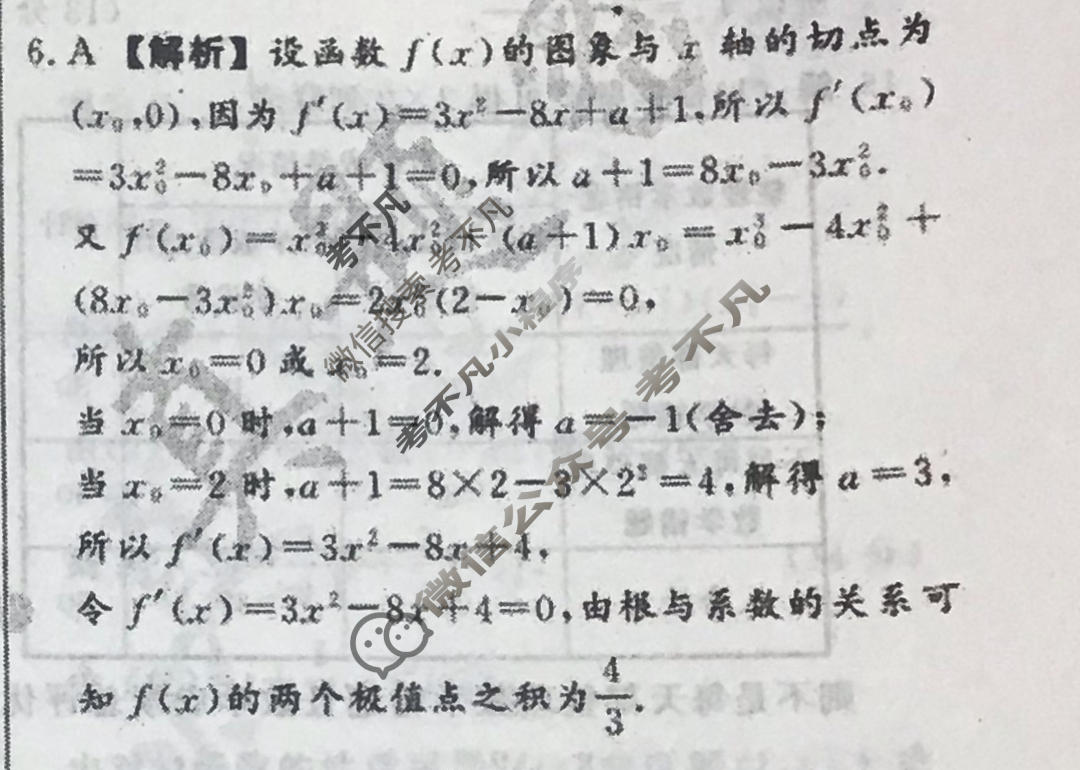 6. A 【解析】设函数 f(x)的图象与 x 轴的切点为
(x₀,0),因为 f′(x)=3x²-8x+a+1,所以 f′(x₀)
=3x₀²-8x₀+a+1=0,所以 a+1=8x₀-3x₀².
又 f(x₀)=x₀³-4x₀²+(a+1)x₀=x₀³-4x₀²+
(8x₀-3x₀²)x₀=2x₀²(2-x₀)=0,
所以 x₀=0 或 x₀=2.
当 x₀=0 时,a+1=0,解得 a=-1(舍去);
当 x₀=2 时,a+1=8×2-3×2²=4,解得 a=3,
所以 f′(x)=3x²-8x+4,
令 f′(x)=3x²-8x+4=0,由根与系数的关系可
知 f(x)的两个极值点之积为4/3.
考不凡
微信搜索 考不凡
考不凡小程序
微信公众号 考不凡